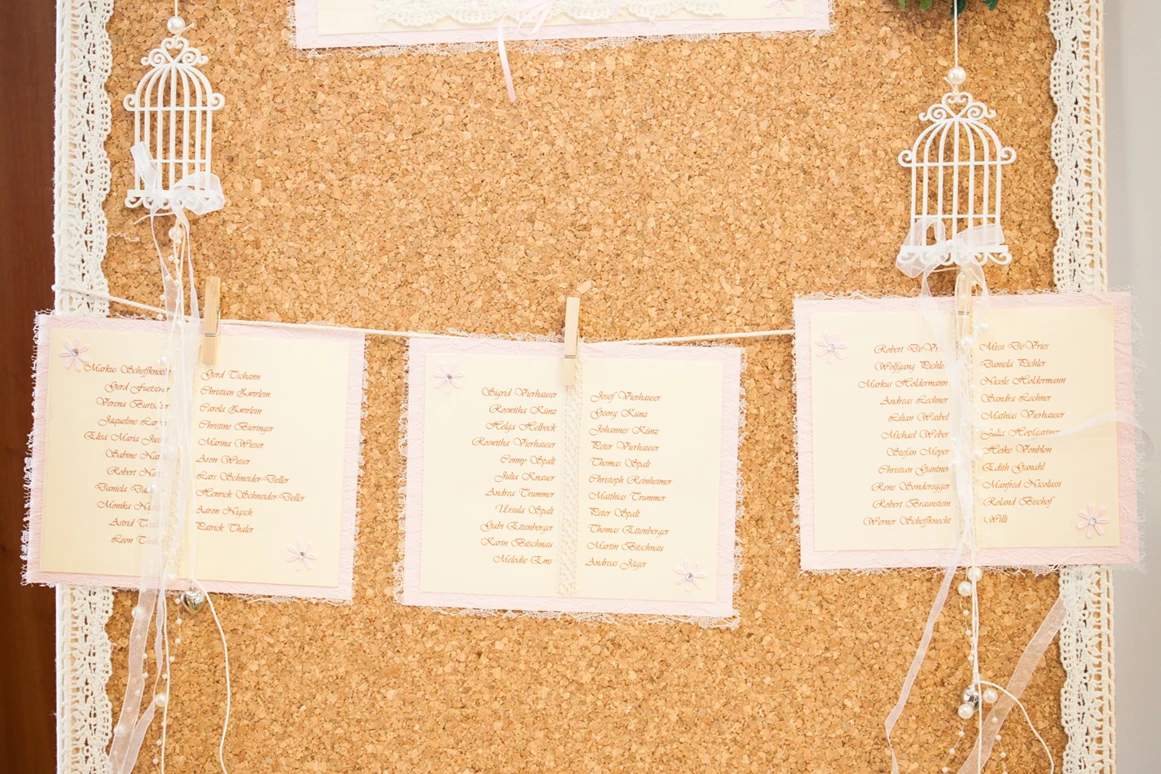 Markus Scheffknecht
Gerd
Verena
Jaqueline
Elisa Maria
Sabine
Robert
Daniela
Monika
Astrid
Leon
Gerd Tschann
Christian Zwirlein
Carola Zwirlein
Christine Bieringer
Marina Wieser
Aron Wieser
Lars Schneider-Deller
Henrick Schneider-Deller
Aaron Nagch
Patrick Thaler
Sigrid Vierhauser
Roswitha Künz
Helga Helbock
Roswitha Vierhauser
Conny Spalt
Julia Knauer
Andrea Trummer
Ursula Spalt
Gabi Ettenberger
Karin Bitschnau
Melodie Ems
Josef Vierhauser
Georg Künz
Johannes Künz
Peter Vierhauser
Thomas Spalt
Christoph Reinheimer
Matthias Trummer
Peter Spalt
Thomas Ettenberger
Martin Bitschnau
Andreas Jäger
Robert DeVries
Wolfgang Pichler
Markus Holdermann
Andreas Lechner
Lilian Waibel
Michael Weber
Stefan Meyer
Christian Gantner
Rene Sonderegger
Robert Braunstein
Werner Scheffknecht
Missa DeVries
Daniela Pichler
Nicole Holdermann
Sandra Lechner
Mathias Vierhauser
Julia Hopfgartner
Heike Vonblon
Edith Ganahl
Manfred Nicolussi
Roland Bischof
Willi